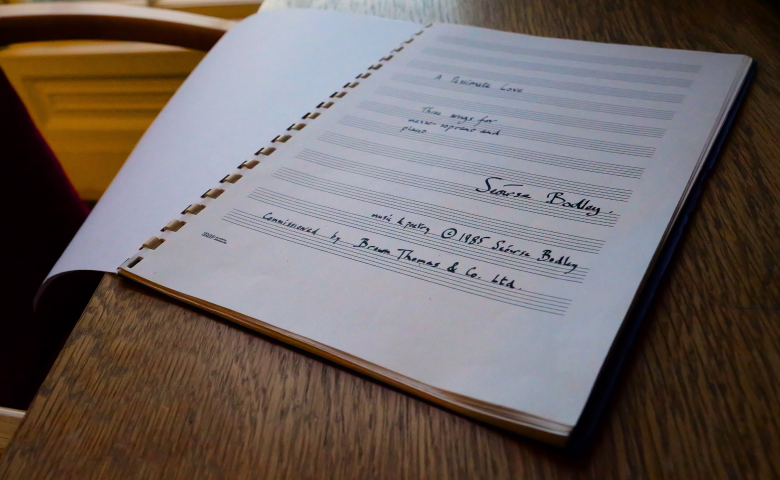 A Passionate Love
Three songs for
mezzo-soprano and
piano
Seóirse Bodley.
music & poetry © 1985 Seóirse Bodley
Commissioned by Brown Thomas & Co. Ltd.